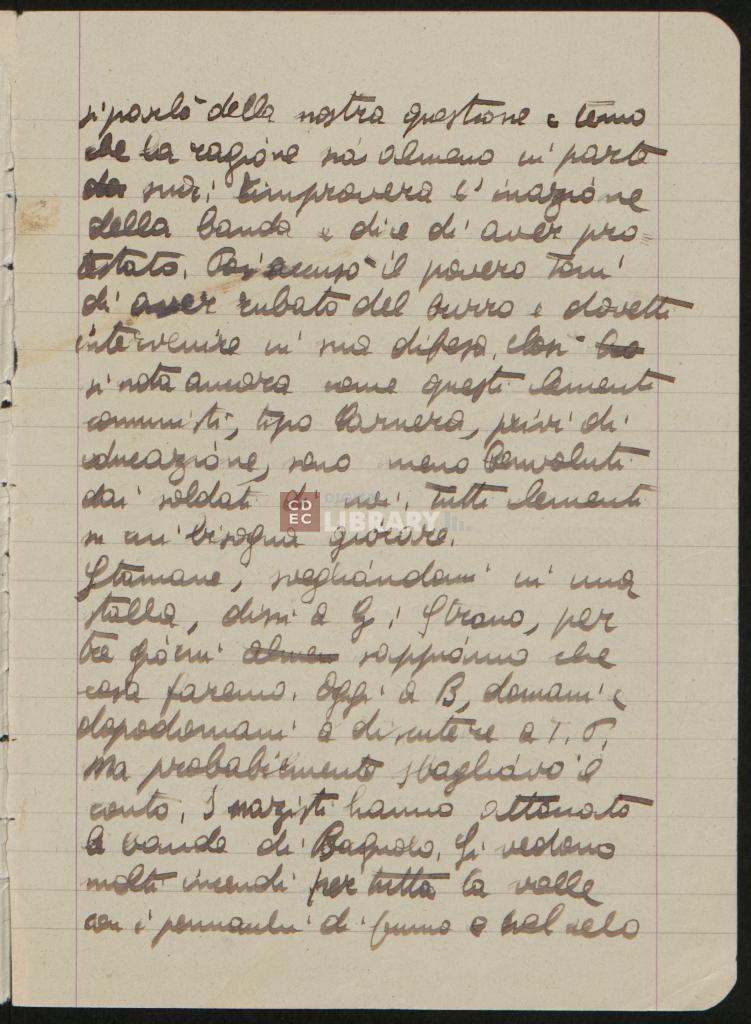 si parlò della nostra questione e temo
che la ragione sia almeno in parte
sua; rimprovera l'inazione
della banda e dice di aver pro=
testato. Poi accusò il povero Toni
di aver rubato del burro e dovetti
intervenire in sua difesa. Così ho
si nota ancora come questi elementi
comunisti, tipo Carnera, privi di
educazione, sono meno benvoluti
dai soldati di noi. Tutti elementi
su cui bisogna giocare.
Stamane, svegliandomi in una
stalla, dissi a G; Strano, per
tre giorni almen sappiamo che
cosa faremo. Oggi a B, domani e
dopodomani a discutere a T. P.
Ma probabilmente sbagliavo i
conto. I nazisti hanno attaccato
la banda di Bagnolo. Si vedono
molti incendi per tutta la valle
con i pennacchi di fumo e nel cielo
CDEC
DIGITAL
LIBRARY